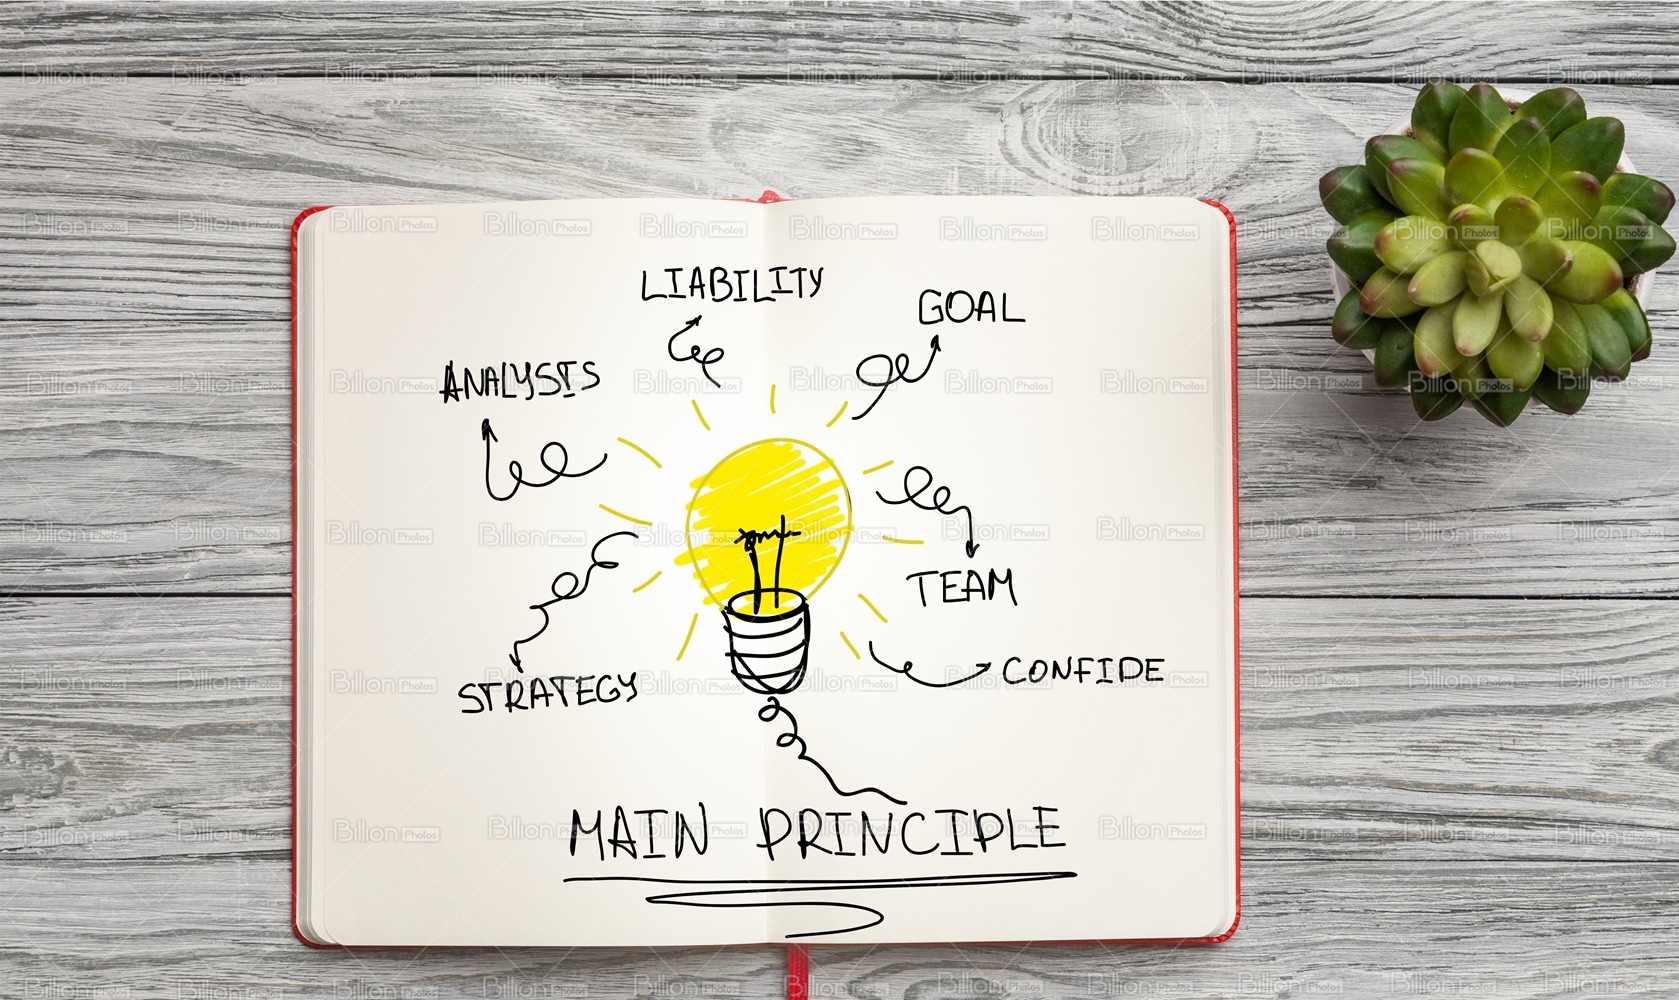 LIABILITY
GOAL
ANALYSIS
TEAM
CONFIDE
STRATEGY
MAIN PRINCIPLE
Billion Photos